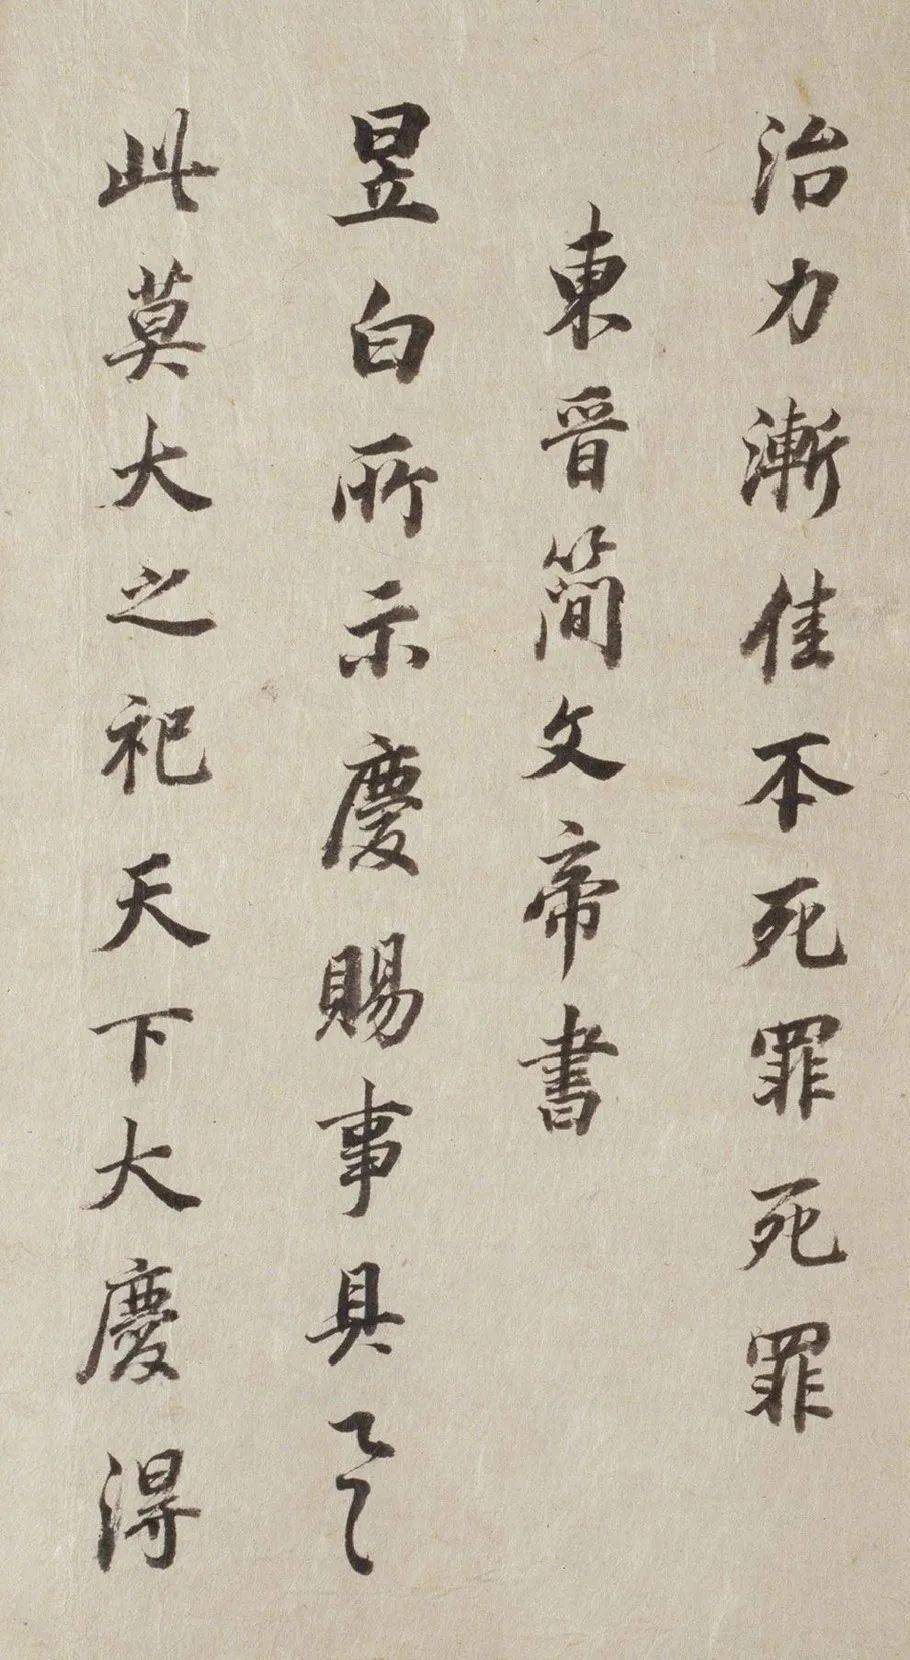 治力漸佳本死罪死罪
東晋簡文帝書
昱白所示慶賜事具
此莫大之祀天下大慶得